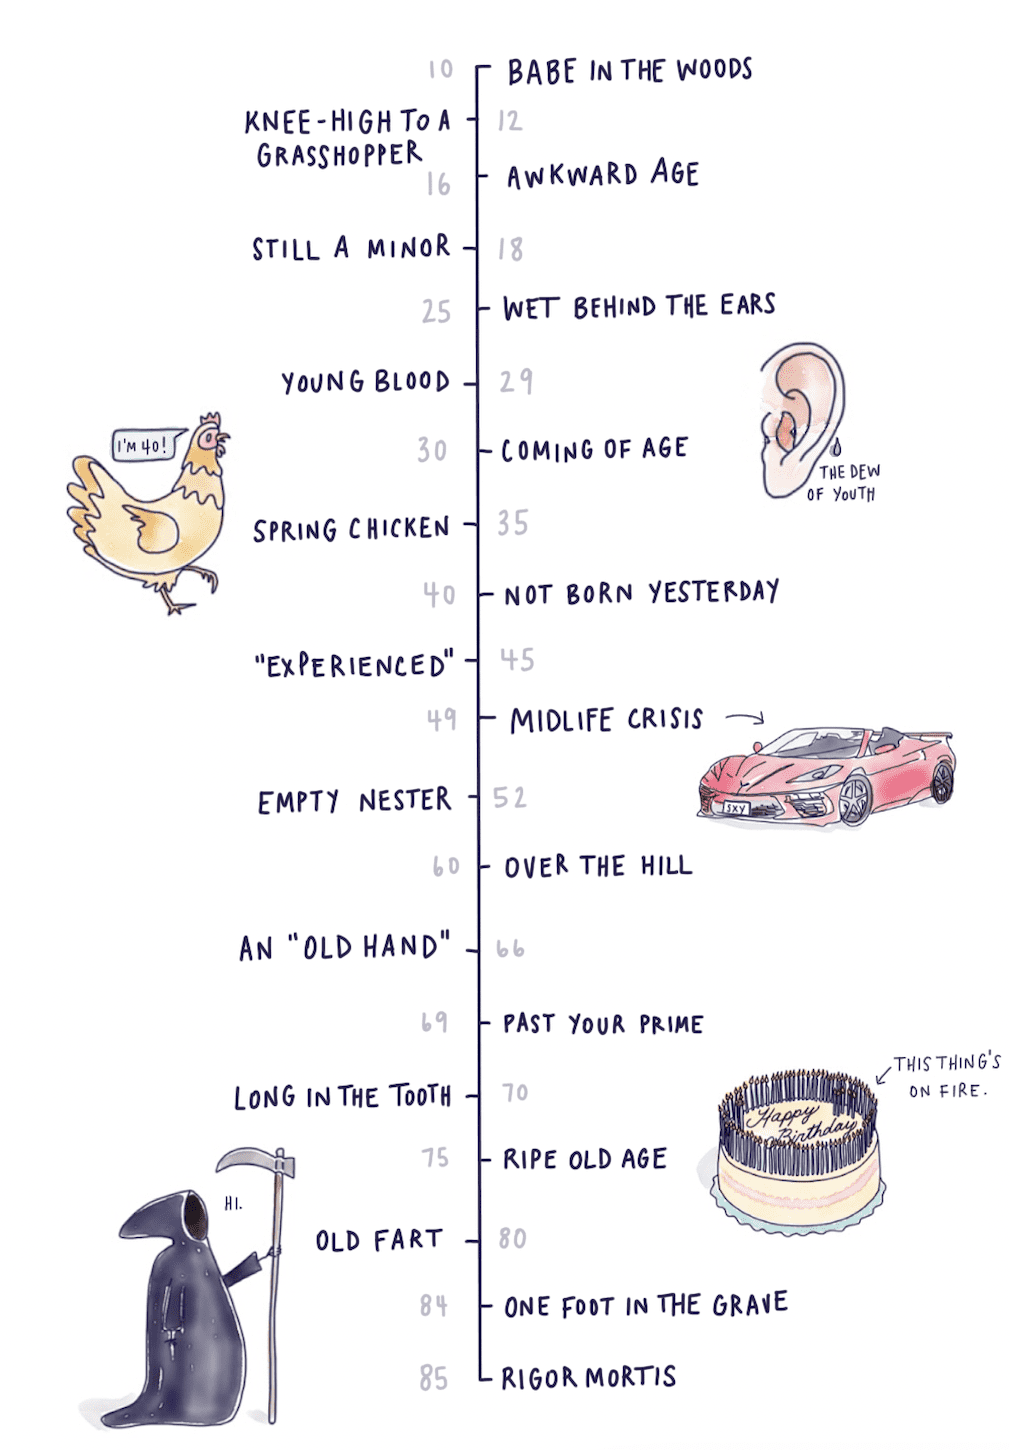 10 BABE IN THE WOODS
KNEE-HIGH TO A 12
GRASSHOPPER
16 AWKWARD AGE
STILL A MINOR 18
25 WET BEHIND THE EARS
YOUNG BLOOD 29
I'M 40!
30 COMING OF AGE
THE DEW
OF YOUTH
SPRING CHICKEN 35
40 NOT BORN YESTERDAY
"EXPERIENCED" 45
49 MIDLIFE CRISIS
SXY
EMPTY NESTER 52
60 OVER THE HILL
AN "OLD HAND" 66
69 PAST YOUR PRIME
THIS THING'S
ON FIRE.
LONG IN THE TOOTH 70
Happy
Birthday
75 RIPE OLD AGE
HI.
OLD FART 80
84 ONE FOOT IN THE GRAVE
85 RIGOR MORTIS